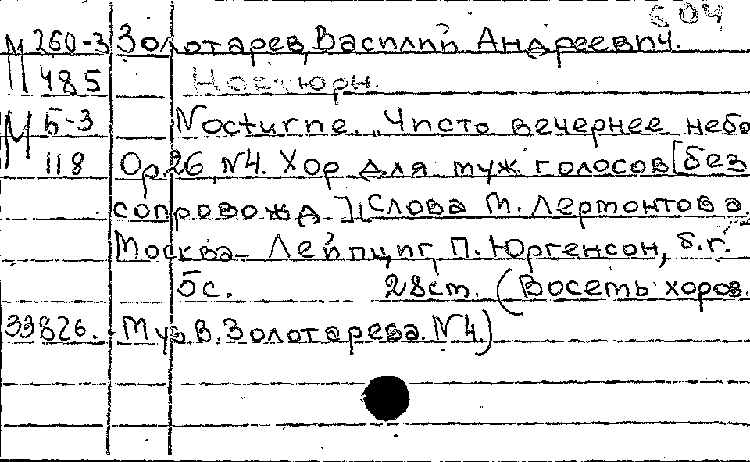 604
М 260-3 Золотарев, Василий Андреевич.
485 Ноктюрн.
М Б-3 Nocturne. „Чисто вечернее небо
118 Op. 26, N4. Хор для муж голосов [без
сопровожд.] [Слова М. Лермонтова.
Москва – Лейпциг, П. Юргенсон, б.г.
5с. 28ст. (Восемь хоров.
33826. Муз. В. Золотарева. N4.)